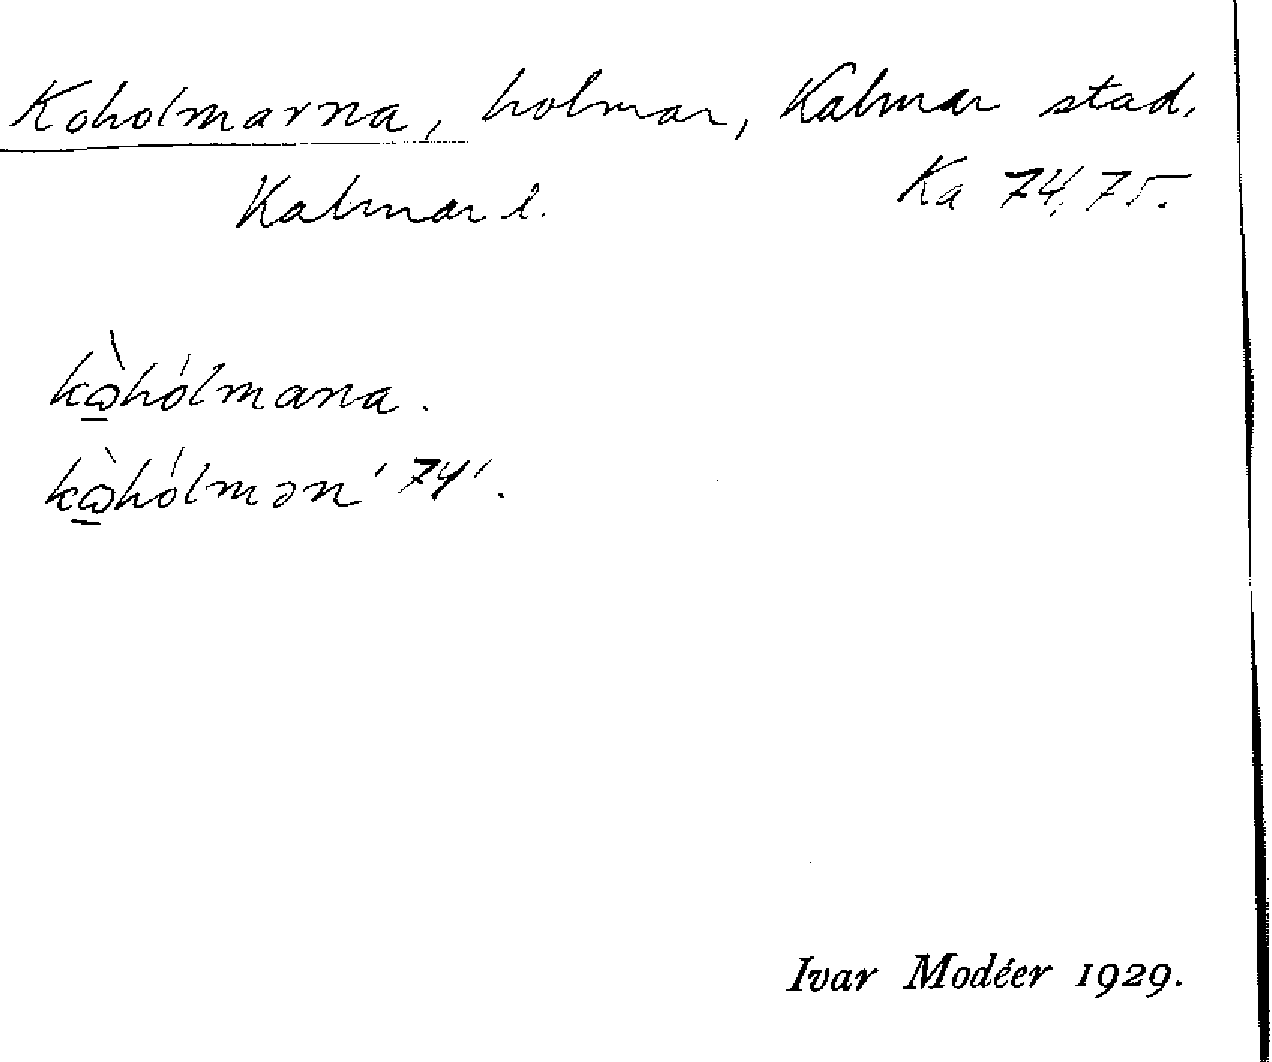 Koholmarna, holmar, Kalmar stad.
Kalmar l. Ka 74, 75.
kὼ̲hólmana.
kὼ̲hólmən '74'.
Ivar Modéer 1929.